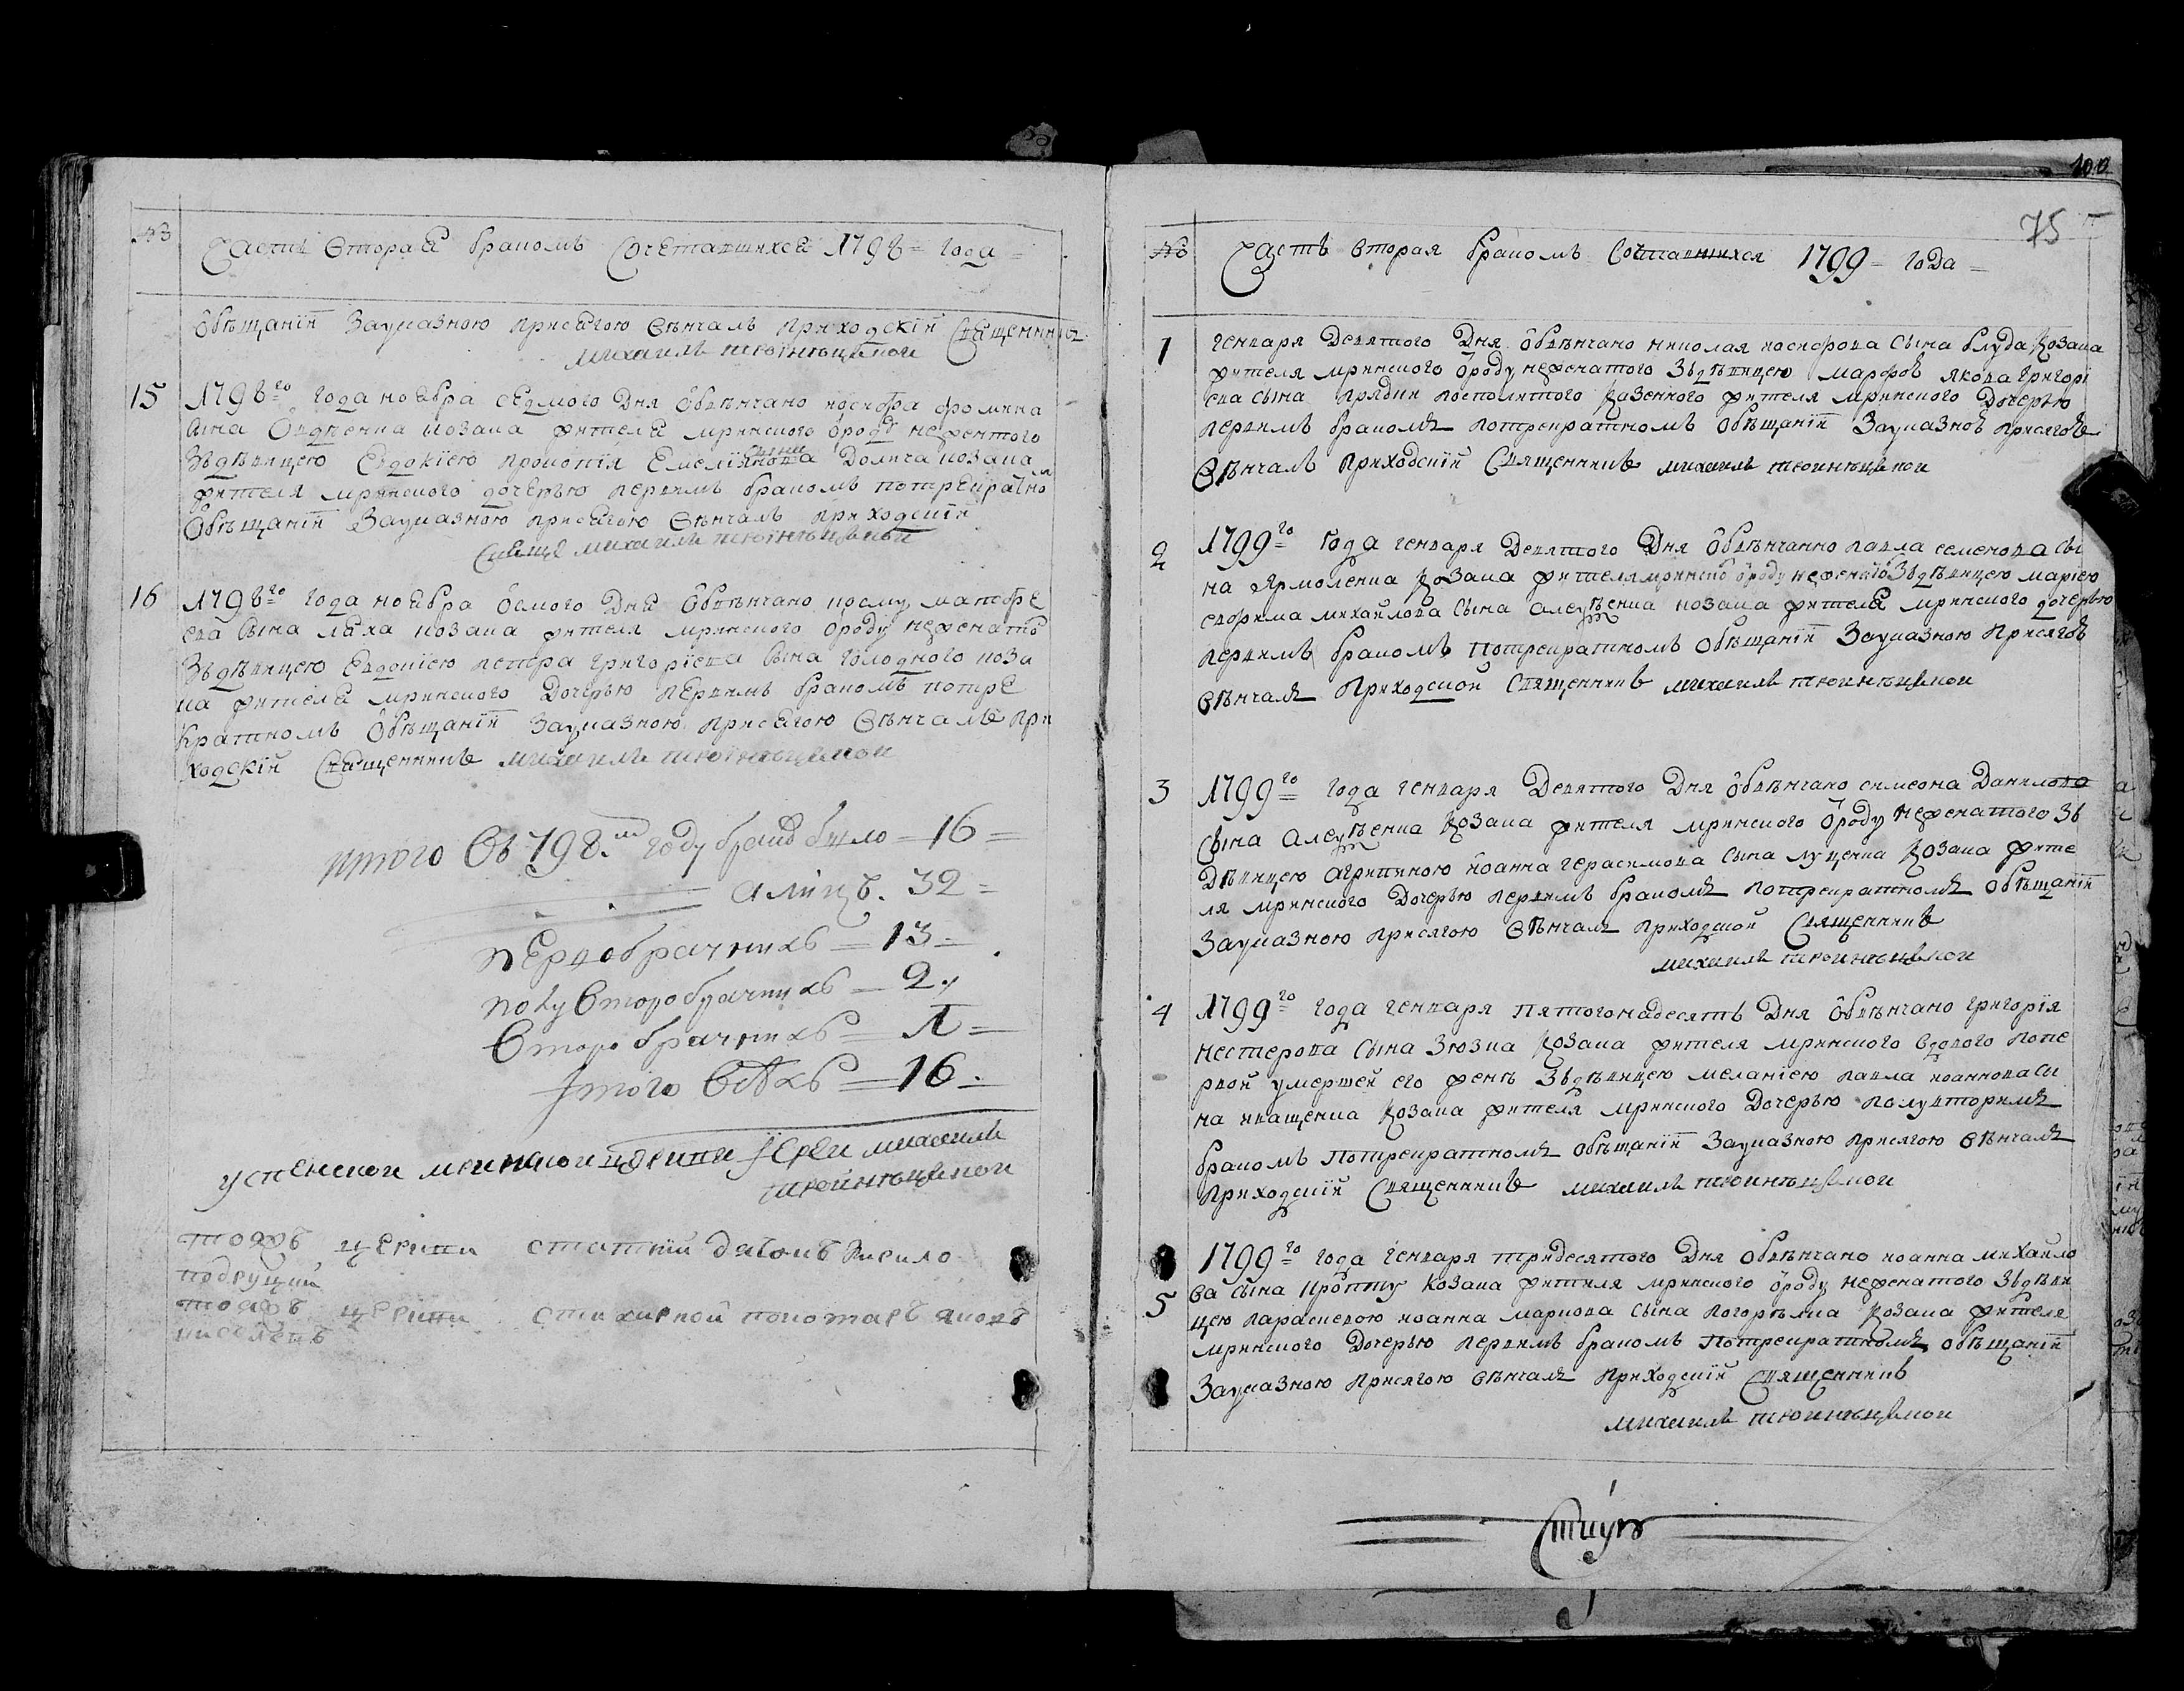 №
Часть Вторая бракомъ Сочетавшихся 1798 = года =
Обѣщаніи Зауказною присягою Вѣнчалъ приходскій Священникъ
михаилъ
15
1798го года ноября седмого Дня Обвѣнчано никифора фомина
сына козака жителя мринского ѡтроду неженатого
Зъдѣвицею Евдокіею прокопія Емеліянова сына Долята козака
жителя мринского дочерью первимъ бракомъ потрекратном
Обѣщаніи Зауказною присягою Вѣнчалъ приходскій
Свящ михаилъ
16
1798го года ноября осмого Дня Обвѣнчано козму матфѣ
ева сына ляха козака жителя мринского ѡтроду неженато
Зъдѣвицею Евдокіею петра григоріева сына голодного коза
ка жителя мринского Дочерью первимъ бракомъ потре
кратномъ Обѣщаніи Зауказною присягою Вѣнчалъ при
ходскій Священникъ михаилъ
итого Въ 798м году браков было = 16 =
а лицъ. 32 =
первобрачнихъ = 13 =
полувторобрачнихъ = 2 ,
Второбрачнихъ = 1 =
Итого всѣхъ = 16 .
успенской мринской церкви іерей михаилъ
тояжъ церкви дяконъ
тояжъ церкви стихирной пономаръ яковъ
100
75
№
Часть вторая бракомъ Сочетавшихся 1799 = года =
1
генваря Девятого Дня Обвѣнчано николая никифорова сына блуда козака
жителя мринского ѡтроду неженатого Зъдѣвицею марфою якова григорі
ева сына прядки посполитого казенного жителя мринского Дочерью
первимъ бракомъ потрекратномъ Обѣщаніи Зауказною присягою
Вѣнчалъ приходскій Священникъ михаилъ
2
1799го года генваря Девятого Дня Обвѣнчанно павла семенова сы
на Ярмоленка козака жителя мринского ѡтроду неженатого Зъдѣвицею маріею
евфима михайлова сына алексѣенка козака жителя мринского дочерью
первимъ бракомъ потрекратномъ Обѣщаніи Зауказною присягою
вѣнчалъ приходской Священникъ михаилъ
3
1799го года генваря Девятого Дня Обвѣнчано симеона Данилова
сына алексѣенка козака жителя мринского ѡтроду неженатого Зъ
Дѣвицею агрипиною иоанна герасимова сына луценка козака жите
ля мринского Дочерью первимъ бракомъ потрекратномъ обѣщаніи
Зауказною присягою Вѣнчалъ приходской Священникъ
михаилъ
4
1799го года генваря пятогонадесять Дня Обвѣнчано григорія
нестерова сына Зюзка козака жителя мринского вдового попе
рвой умершей его женѣ Зъдѣвицею меланіею павла иоаннова сы
на иващенка козака жителя мринского Дочерью полувторимъ
бракомъ потрекратномъ обѣщаніи Зауказною присягою вѣнчалъ
приходскій Священникъ михаилъ
5
1799го года генваря тридесятого Дня обвѣнчано иоанна михайло
ва сына козака жителя мринского ѡтроду неженатого Зъдѣви
цею параскевою иоанна маркова сына погорѣлка козака жителя
мринского Дочерью первимъ бракомъ потрекратномъ обѣщаніи
Зауказною присягою вѣнчалъ приходскій Священникъ
михаилъ